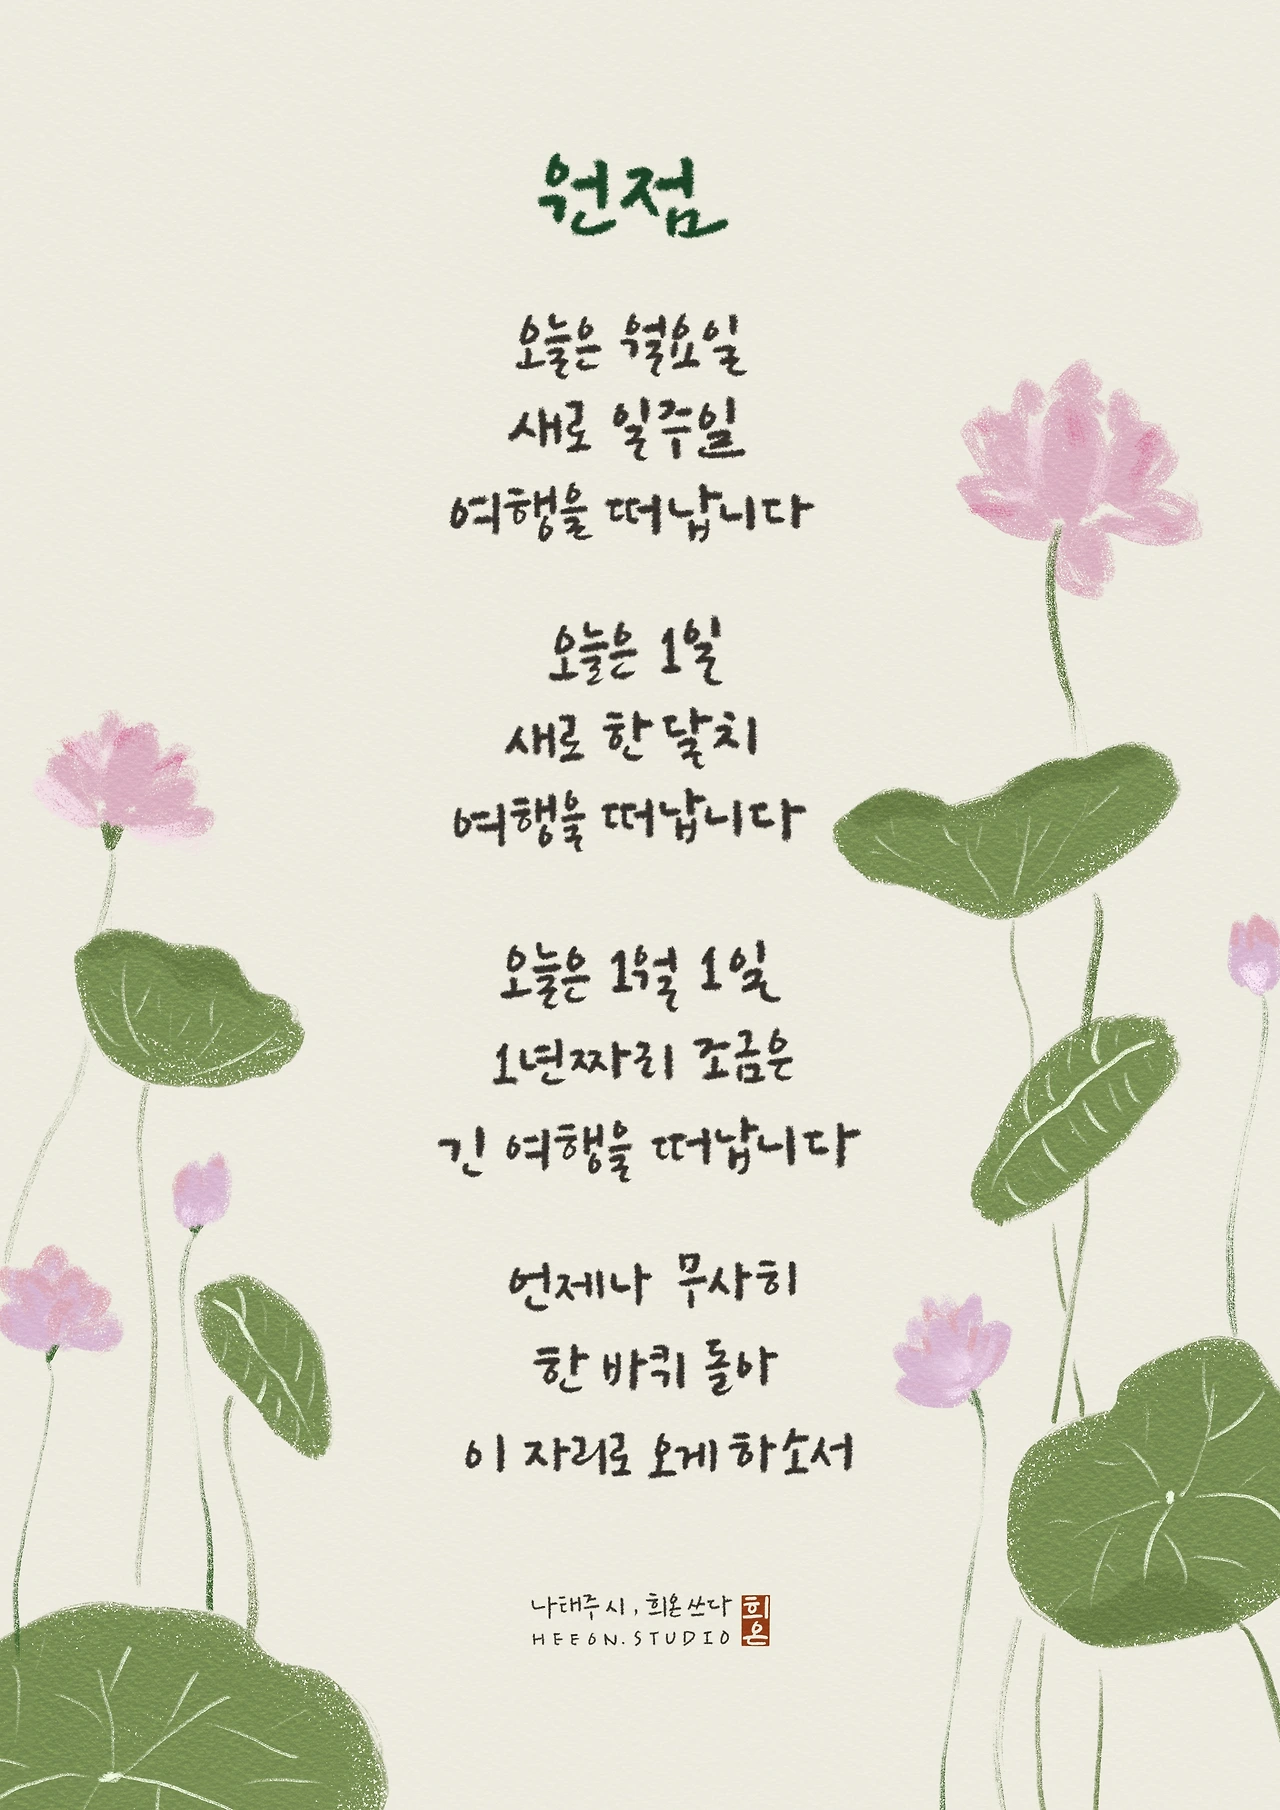 원점
오늘은 월요일
새로 일주일
여행을 떠납니다
오늘은 1일
새로 한 달치
여행을 떠납니다
오늘은 1월 1일
1년짜리 조금은
긴 여행을 떠납니다
언제나 무사히
한 바퀴 돌아
이 자리로 오게 하소서
나태주 시, 희온 쓰다
HEEON.STUDIO
희온